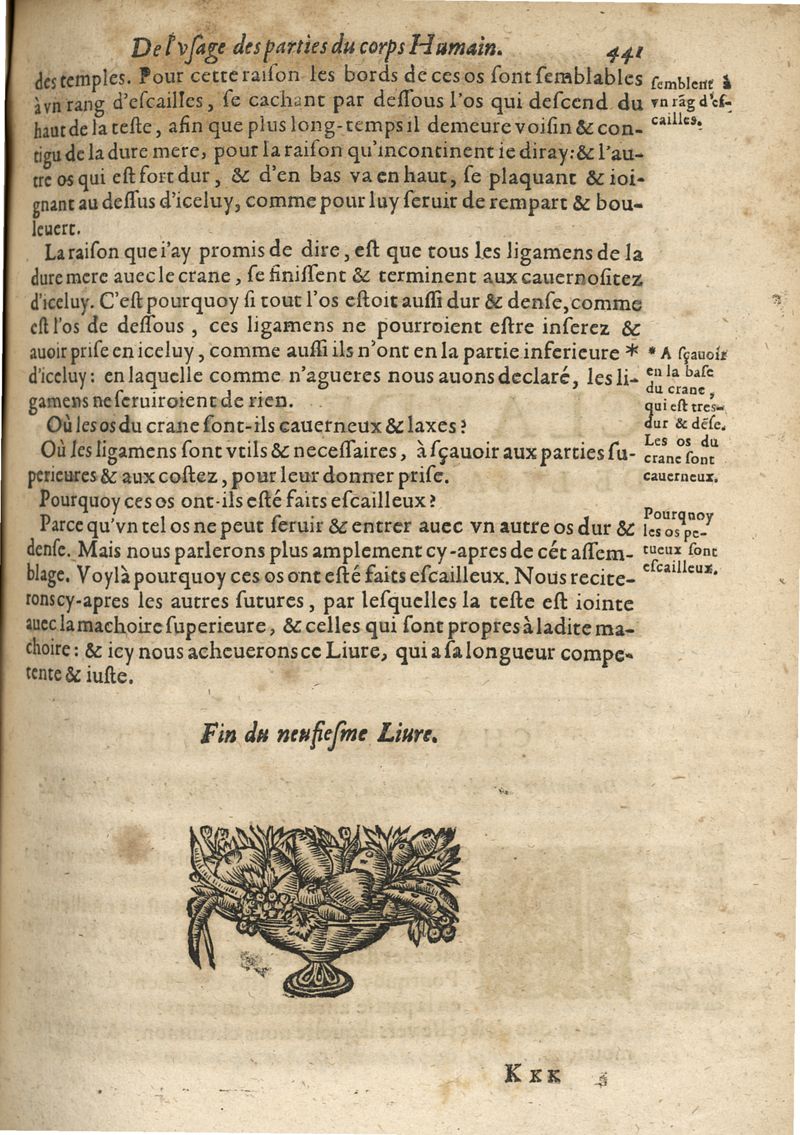 De l'vſage des parties du corps Humain. 441
des temples. Pour cette raiſon les bords de ces os ſont ſemblables
à vn rang d'eſcailles, ſe cachant par deſſous l'os qui deſcend du
haut de la teſte, afin que plus long-temps il demeure voiſin & con-
tigu de la dure mere, pour la raiſon qu'incontinent ie diray: & l'au-
tre os qui eſt fort dur, & d'en bas va en haut, ſe plaquant & ioi-
gnant au deſſus d'iceluy, comme pour luy ſeruir de rempart & bou-
leuert.
ſemblent à
vn rāg d'eſ-
cailles.
La raiſon que i'ay promis de dire, eſt que tous les ligamens de la
dure mere auec le crane, ſe finiſſent & terminent aux cauernoſitez
d'iceluy. C'eſt pourquoy ſi tout l'os eſtoit auſſi dur & denſe, comme
eſt l'os de deſſous, ces ligamens ne pourroient eſtre inſerez &
auoir priſe en iceluy, comme auſſi ils n'ont en la partie inferieure *
d'iceluy: en laquelle comme n'agueres nous auons declaré, les li-
gamens ne ſeruiroient de rien.
* A ſçauoir
en la baſe
du crane,
qui eſt tres-
dur & dēſe.
Où les os du crane ſont-ils cauerneux & laxes?
Où les ligamens ſont vtils & neceſſaires, à ſçauoir aux parties ſu-
perieures & aux coſtez, pour leur donner priſe.
Les os du
crane ſont
cauerneux.
Pourquoy ces os ont-ils eſté faits eſcailleux?
Parce qu'vn tel os ne peut ſeruir & entrer auec vn autre os dur &
denſe. Mais nous parlerons plus amplement cy-apres de cét aſſem-
blage. Voylà pourquoy ces os ont eſté faits eſcailleux. Nous recite-
rons cy-apres les autres ſutures, par leſquelles la teſte eſt iointe
auec la machoire ſuperieure, & celles qui ſont propres à ladite ma-
choire: & icy nous acheuerons ce Liure, qui a ſa longueur compe-
tente & iuſte.
Pourquoy
les os pe-
tueux ſont
eſcailleux.
Fin du neufieſme Liure.
KKK 3